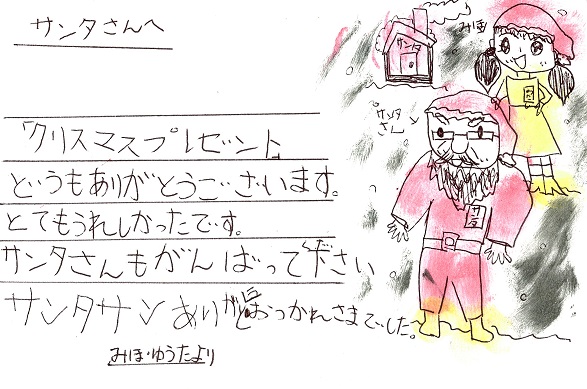 サンタさんへ
クリスマスプレゼント
どうもありがとうございます。
とてもうれしかったです。
サンタさんもがんばって下さい
サンタサンありがとうおつかれさまでした。
みほ・ゆうたより
サンタ
みほ
サンタ
さん